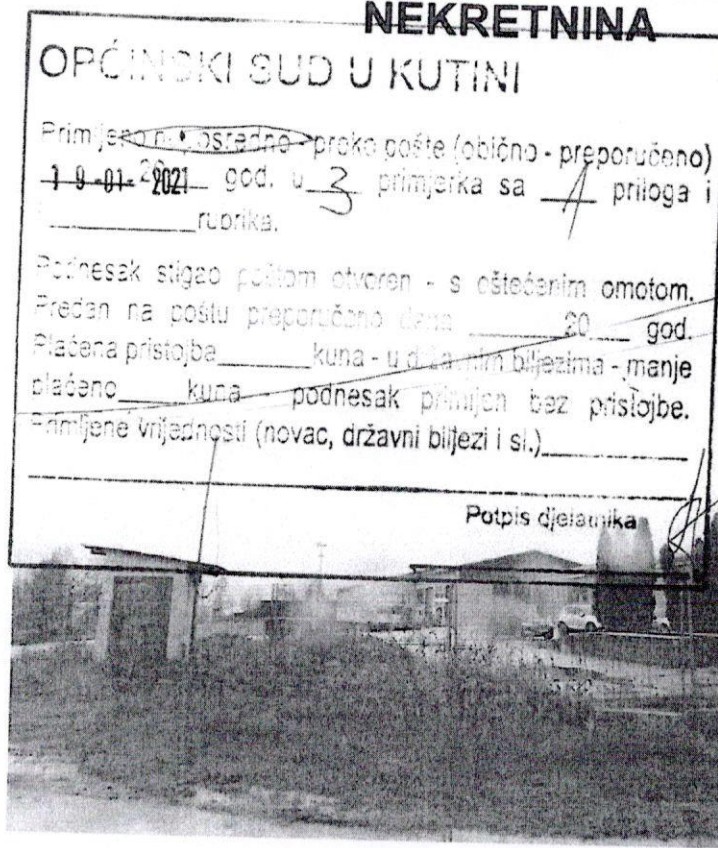 NEKRETNINA
OPĆINSKI SUD U KUTINI
Primljeno neposredno - preko pošte (obično - preporučeno)
19-01-2021 20 god. u 3 primjerka sa 1 priloga i
rubrika.
Podnesak stigao poštom otvoren - s oštećenim omotom.
Predan na poštu preporučeno dana ______ 20 ___ god.
Plaćena pristojba______ kuna - u državnim biljezima - manje
plaćeno_____ kuna - podnesak primljen bez pristojbe.
Primljene vrijednosti (novac, državni biljezi i sl.)__________
Potpis djelatnika